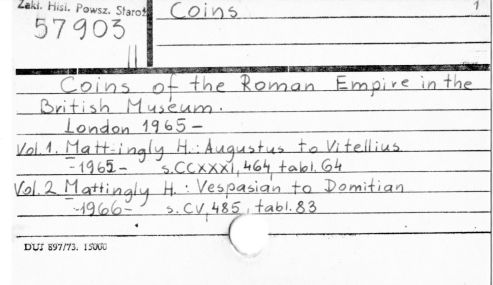 Zakł. Hist. Powsz. Staroż
Coins
1
57903
II
Coins of the Roman Empire in the
British Museum.
London 1965 –
Vol. 1. Matt-ingly H.: Augustus to Vitellius
-1965- s.CCXXXI, 464, tabl. 64
Vol. 2 Mattingly H.: Vespasian to Domitian
-1966- s. CV, 485, tabl. 83
DUJ 897/73. 15000